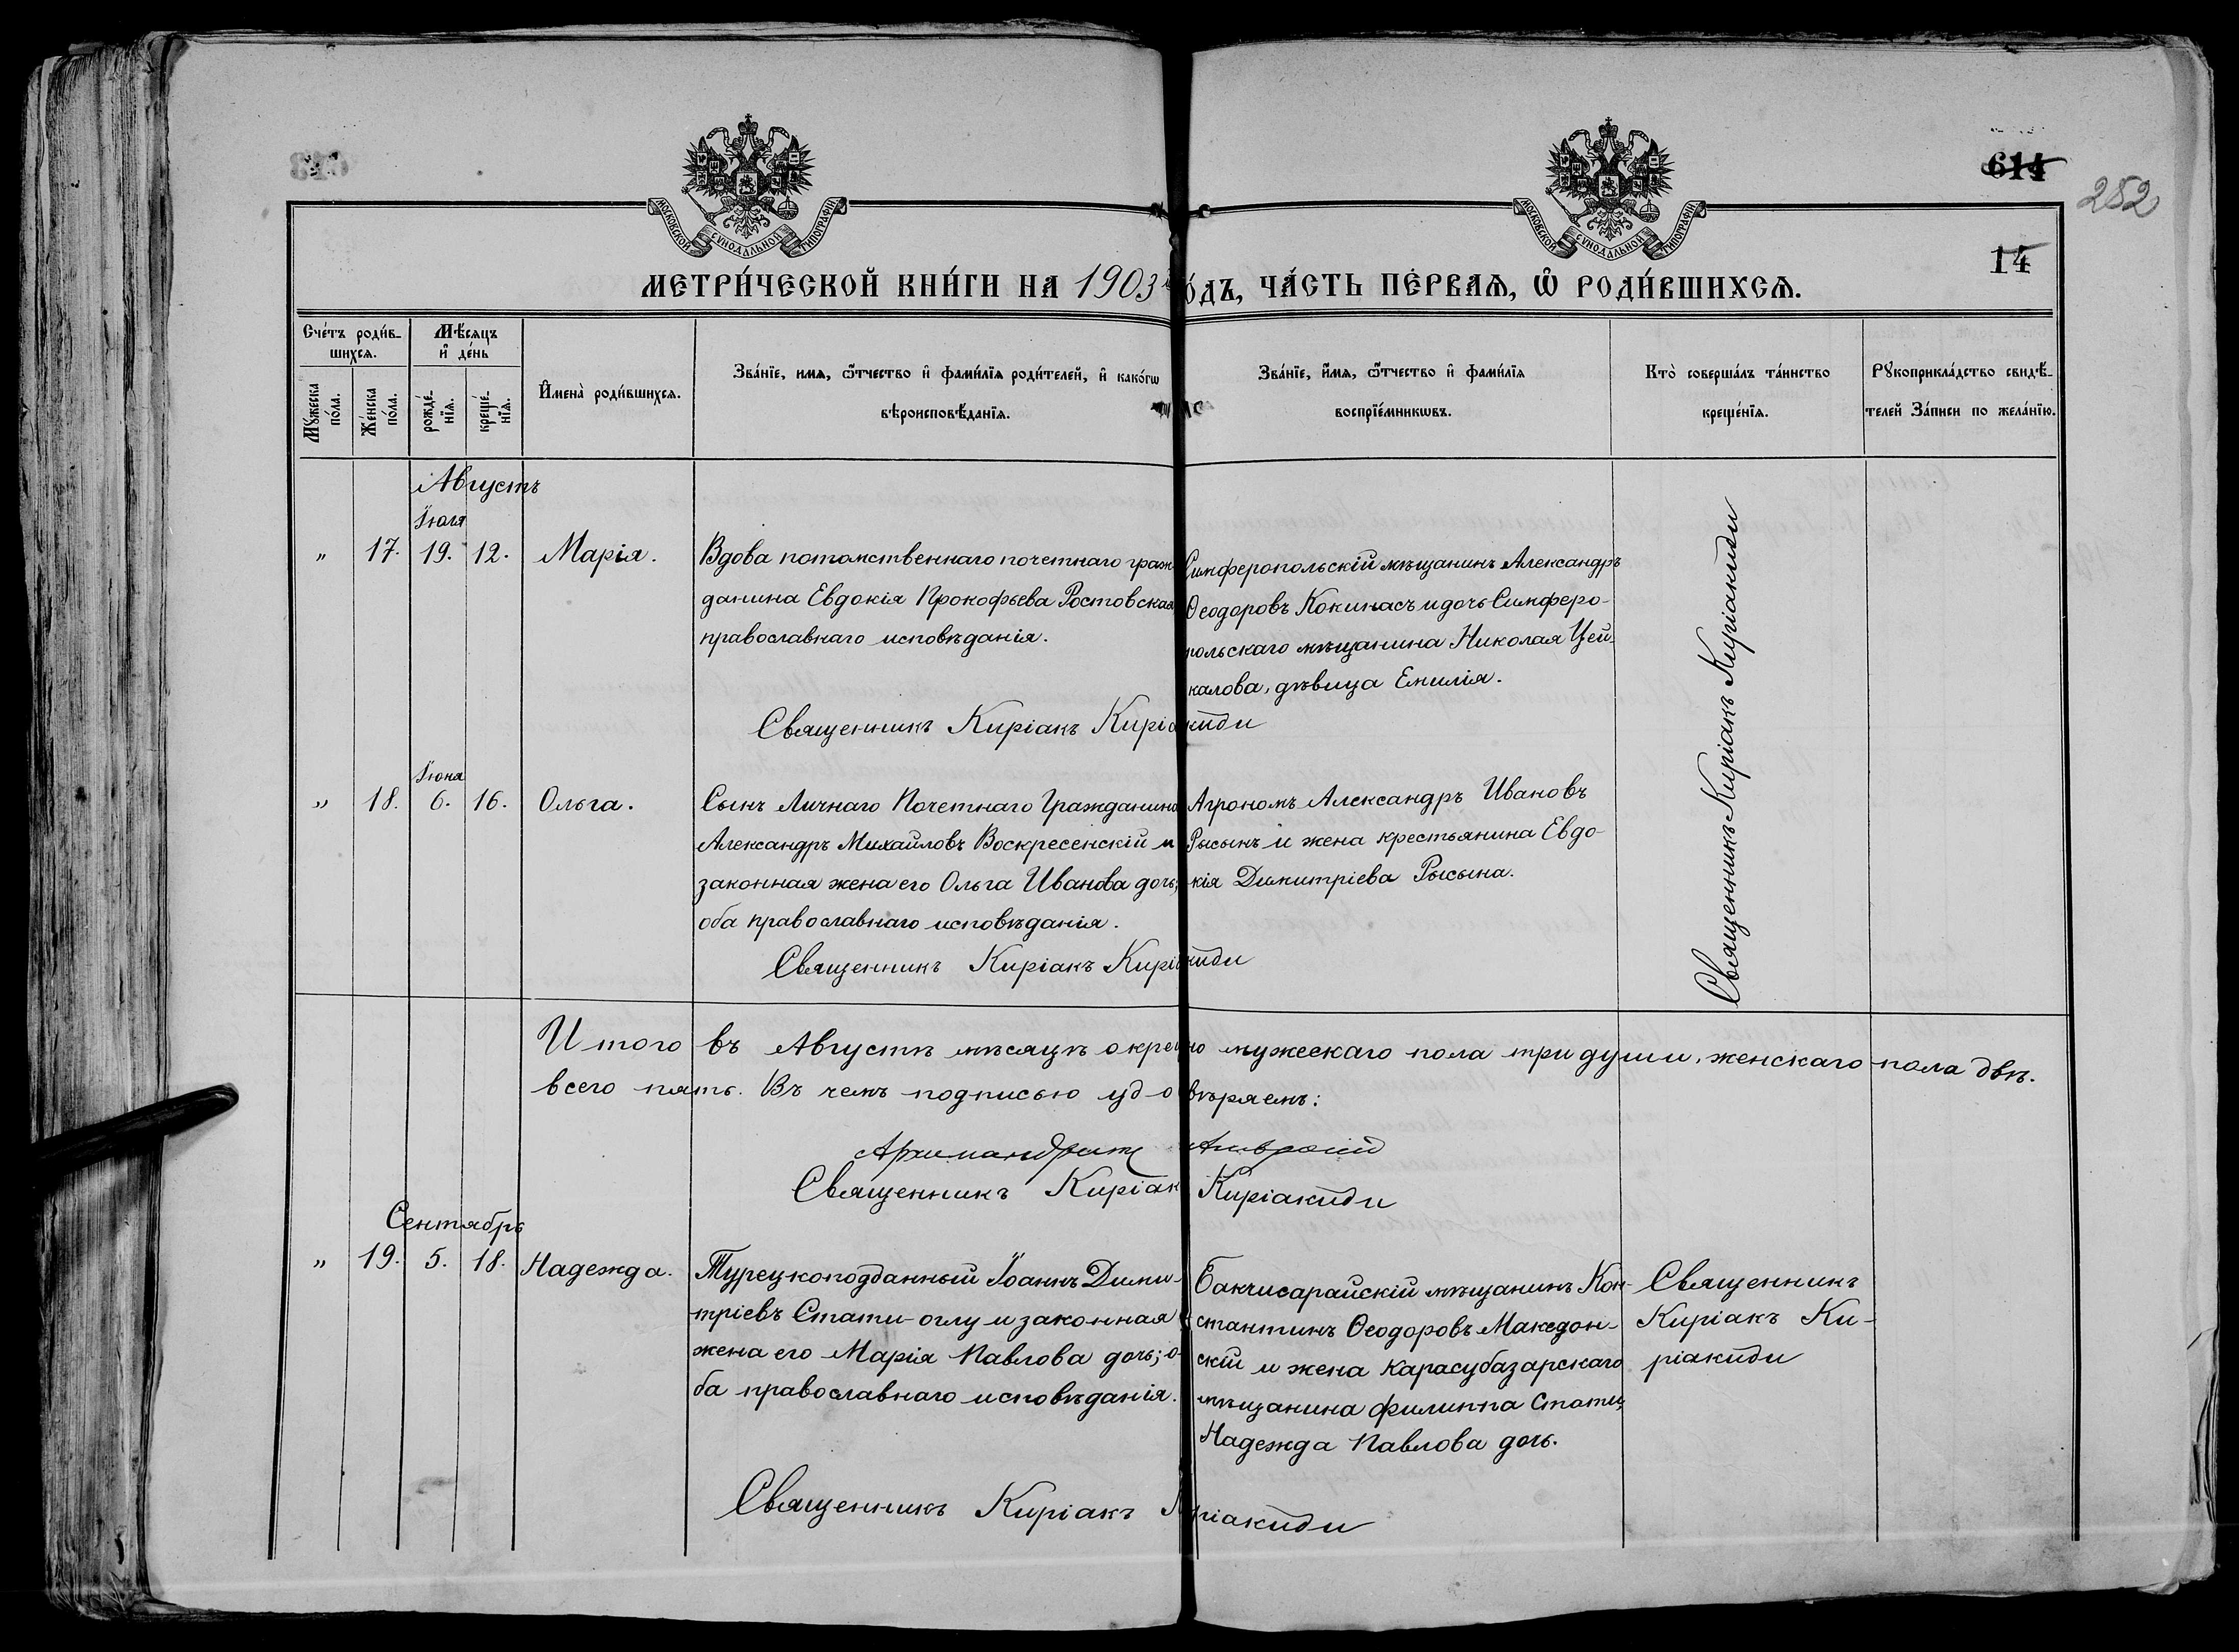 614
252
МОСКОВСКОЙ СѴНОДАЛЬНОЙ ТИПОГРАФІИ
МОСКОВСКОЙ СѴНОДАЛЬНОЙ ТИПОГРАФІИ
14
МЕТРИ́ЧЕСКОЙ КНИ́ГИ НА 1903 го́дъ, ЧА́СТЬ ПЕ́РВАѦ, Ѿ РОДИ́ВШИХСѦ.
Сче́тъ роди́в-
шихсѧ.
Мꙋ́жеска по́ла.
Же́нска по́ла.
Мѣ́сѧцъ
и҆ де́нь
рожде́-
нїѧ.
креще́-
нїѧ.
И҆мена̀ роди́вшихсѧ.
Зва́нїе, имѧ, ѻ҆́тчество и҆ фами́лїѧ роди́телей, и҆ како́гѡ
вѣроисповѣ́данїѧ.
Зва́нїе, и҆́мѧ, ѻ҆́тчество и҆ фами́лїѧ
воспрїе́мникѡвъ.
Кто̀ соверша́лъ та́инство
креще́нїѧ.
Рꙋкоприкла́дство свидѣ́-
телей За́писи по жела́нїю.
Августъ
Іюля
" 17. 19. 12. Марія.
Вдова потомственнаго почетнаго граж-
данина Евдокія Прокофьева Ростовская
православнаго исповѣданія.
Симферопольскій мѣщанинъ Александръ
Ѳеодоровъ Кокинасъ и дочь Симферо-
польскаго мѣщанина Николая Цей-
калова, дѣвица Емилія.
Священникъ Киріакъ Киріакиди
Священникъ Киріакъ Киріакиди
Іюня
" 18. 6. 16. Ольга.
Сынъ Личнаго Почетнаго Гражданина
Александръ Михайловъ Воскресенскій и
законная жена его Ольга Иванова дочь;
оба православнаго исповѣданія.
Агрономъ Александръ Ивановъ
Рысынъ и жена крестьянина Евдо-
кія Димитріева Рысына.
Священникъ Киріакъ Киріакиди
Итого въ Августѣ мѣсяцѣ окрещено мужескаго пола три души, женскаго пола двѣ.
всего пять. Въ чемъ подписью удостовѣряемъ:
Архимандритъ Амвросій
Священникъ Киріакъ Киріакиди
Сентябрь
" 19. 5. 18. Надежда.
Турецкоподданный Іоаннъ Дими-
тріевъ Стати-оглу и законная
жена его Марія Павлова дочь; о-
ба православнаго исповѣданія.
Бакчисарайскій мѣщанинъ Кон-
стантинъ Ѳеодоровъ Македон-
скій и жена карасубазарскаго
мѣщанина Филиппа Стати,
Надежда Павлова дочь.
Священникъ
Киріакъ Ки-
ріакиди
Священникъ Киріакъ Киріакиди